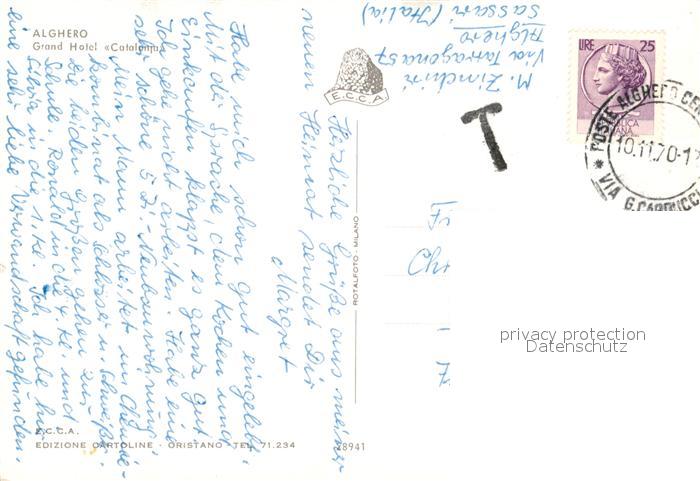 ALGHERO
Grand Hotel «Catalonia»
M. Zinchiri
Via Tarragona 57
Alghero
Sassari (Italia)
E.C.C.A.
LIRE 25
POSTE ALGHERO CEN
10.11.70-1
VIA G. CARDUCCI
T
Herzliche Grüße aus meiner
neuen Heimat sendet Dir
Margret
Habe mich schon gut eingelebt.
Mit der Sprache, dem Kochen und
Einkaufen klappt es ganz gut.
Ich gehe nicht arbeiten. Habe eine
sehr schöne 5 Zi-Neubauwohnung.
Mein Mann arbeitet im Chemie-
kombinat als Schlosser u. Schweißer.
Die beiden Großen gehen zur
Schule. Ronald in die 4. Kl. und
Silvia in die 1. Kl. Ich habe hier
eine sehr liebe Verwandschaft gefunden.
ROTALFOTO - MILANO
privacy protection
Datenschutz
E.C.C.A.
EDIZIONE CARTOLINE - ORISTANO - TEL. 71.234
28941